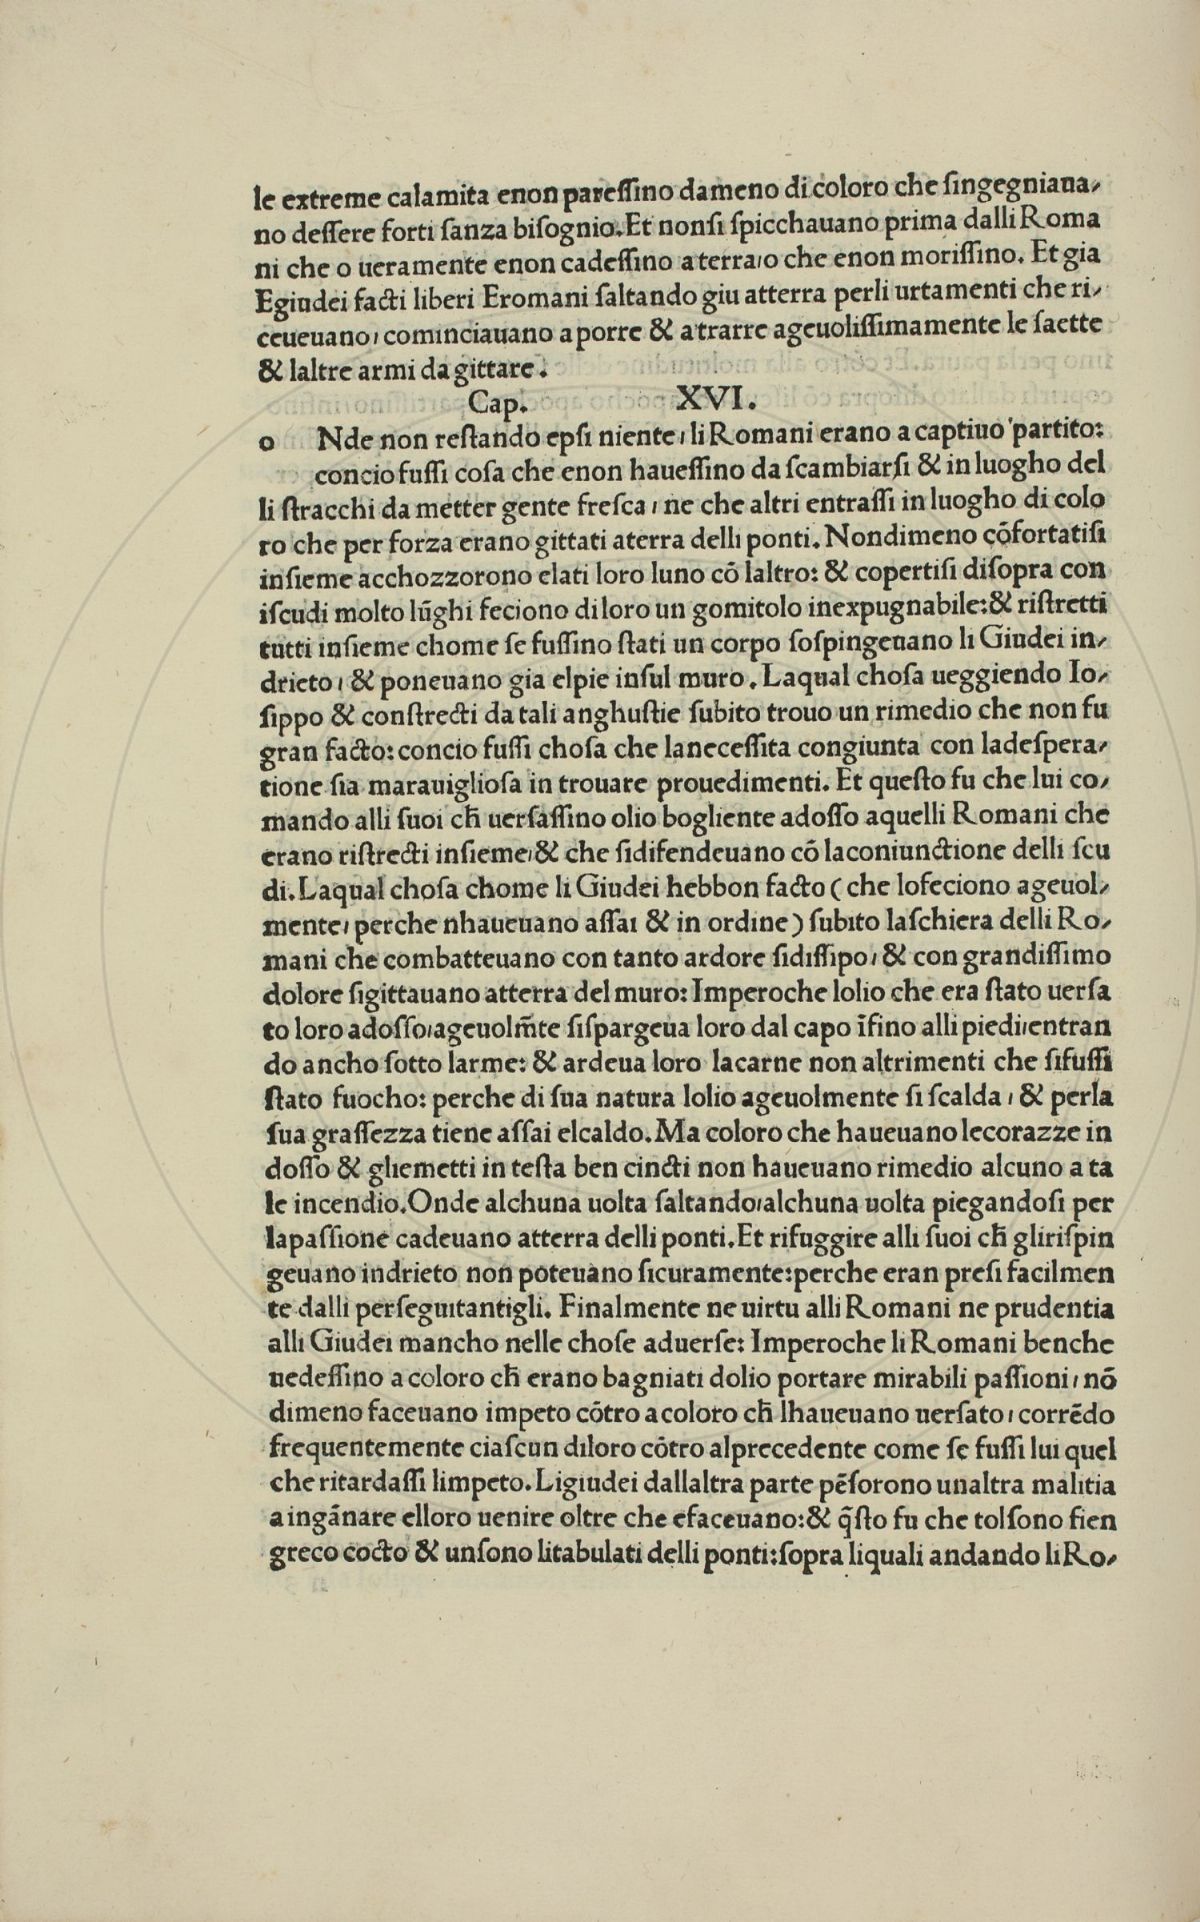 le extreme calamita enon pareſſino dameno di coloro che ſingegniaua⸗
no deſſere forti ſanza biſognio. Et nonſi ſpicchauano prima dalli Roma
ni che o ueramente enon cadeſſino a terra, o che enon moriſſino. Et gia
Egiudei facti liberi Eromani ſaltando giu atterra perli urtamenti che ri⸗
ceueuano, cominciauano a porre & a trarre ageuoliſſimamente le ſaette
& laltre armi da gittare.
Cap. XVI.
o Nde non reſtando epſi niente, li Romani erano a captiuo partito:
concio fuſſi coſa che enon haueſſino da ſcambiarſi & in luogho del
li ſtracchi da metter gente freſca, ne che altri entraſſi in luogho di colo
ro che per forza erano gittati aterra delli ponti. Nondimeno cõfortatiſi
inſieme acchozzorono elati loro luno cõ laltro: & copertiſi diſopra con
iſcudi molto lũghi feciono diloro un gomitolo inexpugnabile: & riſtretti
tutti inſieme chome ſe fuſſino ſtati un corpo ſoſpingeuano li Giudei in⸗
drieto, & poneuano gia elpie inſul muro. Laqual choſa ueggiendo Io⸗
ſippo & conſtrecti da tali anghuſtie ſubito trouo un rimedio che non fu
gran facto: concio fuſſi choſa che laneceſſita congiunta con ladeſpera⸗
tione ſia marauiglioſa in trouare prouedimenti. Et queſto fu che lui co⸗
mando alli ſuoi ch̃ uerſaſſino olio bogliente adoſſo aquelli Romani che
erano riſtrecti inſieme, & che ſidifendeuano cõ laconiunctione delli ſcu
di. Laqual choſa chome li Giudei hebbon facto (che lofeciono ageuol⸗
mente, perche nhaueuano aſſai & in ordine) ſubito laſchiera delli Ro⸗
mani che combatteuano con tanto ardore ſidiſſipo, & con grandiſſimo
dolore ſigittauano atterra del muro: Imperoche lolio che era ſtato uerſa
to loro adoſſo, ageuolm̃te ſiſpargeua loro dal capo ĩfino alli piedi, entran
do ancho ſotto larme: & ardeua loro lacarne non altrimenti che ſifuſſi
ſtato fuocho: perche di ſua natura lolio ageuolmente ſi ſcalda, & perla
ſua graſſezza tiene aſſai elcaldo. Ma coloro che haueuano lecorazze in
doſſo & gliemetti in teſta ben cincti non haueuano rimedio alcuno a ta
le incendio. Onde alchuna uolta ſaltando, alchuna uolta piegandoſi per
lapaſſione cadeuano atterra delli ponti. Et rifuggire alli ſuoi ch̃ gliriſpin
geuano indrieto non poteuano ſicuramente: perche eran preſi facilmen
te dalli perſeguitantigli. Finalmente ne uirtu alli Romani ne prudentia
alli Giudei mancho nelle choſe aduerſe: Imperoche li Romani benche
uedeſſino a coloro ch̃ erano bagniati dolio portare mirabili paſſioni, nõ
dimeno faceuano impeto cõtro a coloro ch̃ lhaueuano uerſato, corrẽdo
frequentemente ciaſcun diloro cõtro alprecedente come ſe fuſſi lui quel
che ritardaſſi limpeto. Ligiudei dallaltra parte pẽſorono unaltra malitia
a ingãnare elloro uenire oltre che efaceuano: & q̃ſto fu che tolſono fien
greco cocto & unſono litabulati delli ponti: ſopra liquali andando li Ro⸗